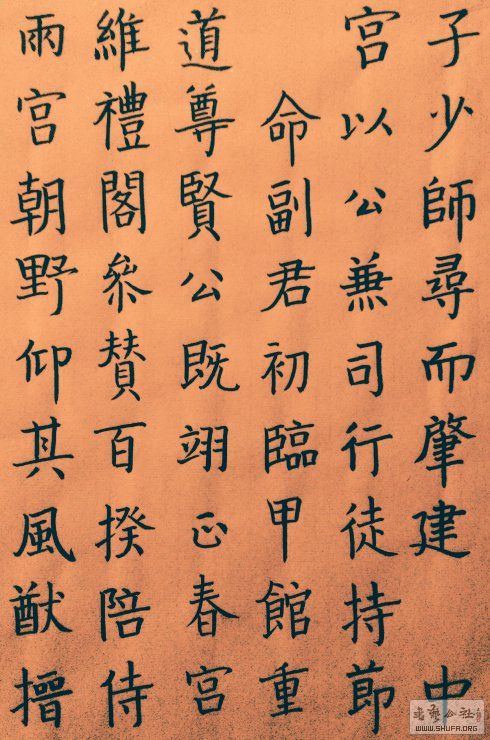 子少師尋而肇建 中
宮以公兼司行徒持節
命副君初臨甲館重
道尊賢公既翊正春宮
維禮閣叅贊百揆陪侍
兩宮朝野仰其風猷搢
WWW.SHUFA.ORG